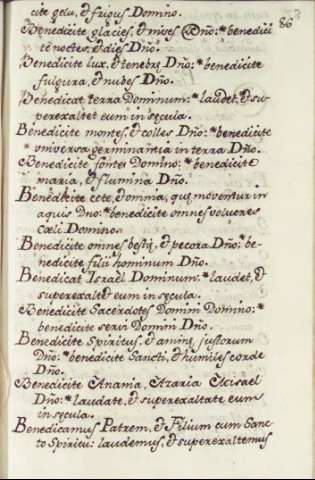 86
cite gelu, & frigus Domino.
Benedicite glacies, & nives Dño: * benedici
te noctes, & dies Dño.
Benedicite lux, & tenebrę Dño: * benedicite
fulgura, & nubes Dño.
Benedicat terra Dominum: * laudet, & su-
perexaltet eum in sęcula.
Benedicite montes, & colles Dño: * benedicite
universa germinantia in terra Dño.
Benedicite fontes Domino: * benedicite
maria, & flumina Dño.
Benedicite cete, & omnia, quę moventur in
aquis Dno: * benedicite omnes volucres
Cœli Domino.
Benedicite omnes bestię, & pecora Dño: be-
nedicite filii hominum Dño.
Benedicat Israël Dominum: * laudet, &
superexaltet eum in sęcula.
Benedicite Sacerdotes Domini Domino: *
benedicite servi Domini Dño.
Benedicite Spiritus, & animę justorum
Dño: * benedicite Sancti, & humiles corde
Dño.
Benedicite Anania, Azaria Misael
Dño: * laudate, & superexaltate eum
in sęcula.
Benedicamus Patrem, & Filium cum Sanc-
to Spiritu: laudemus, & superexaltemus